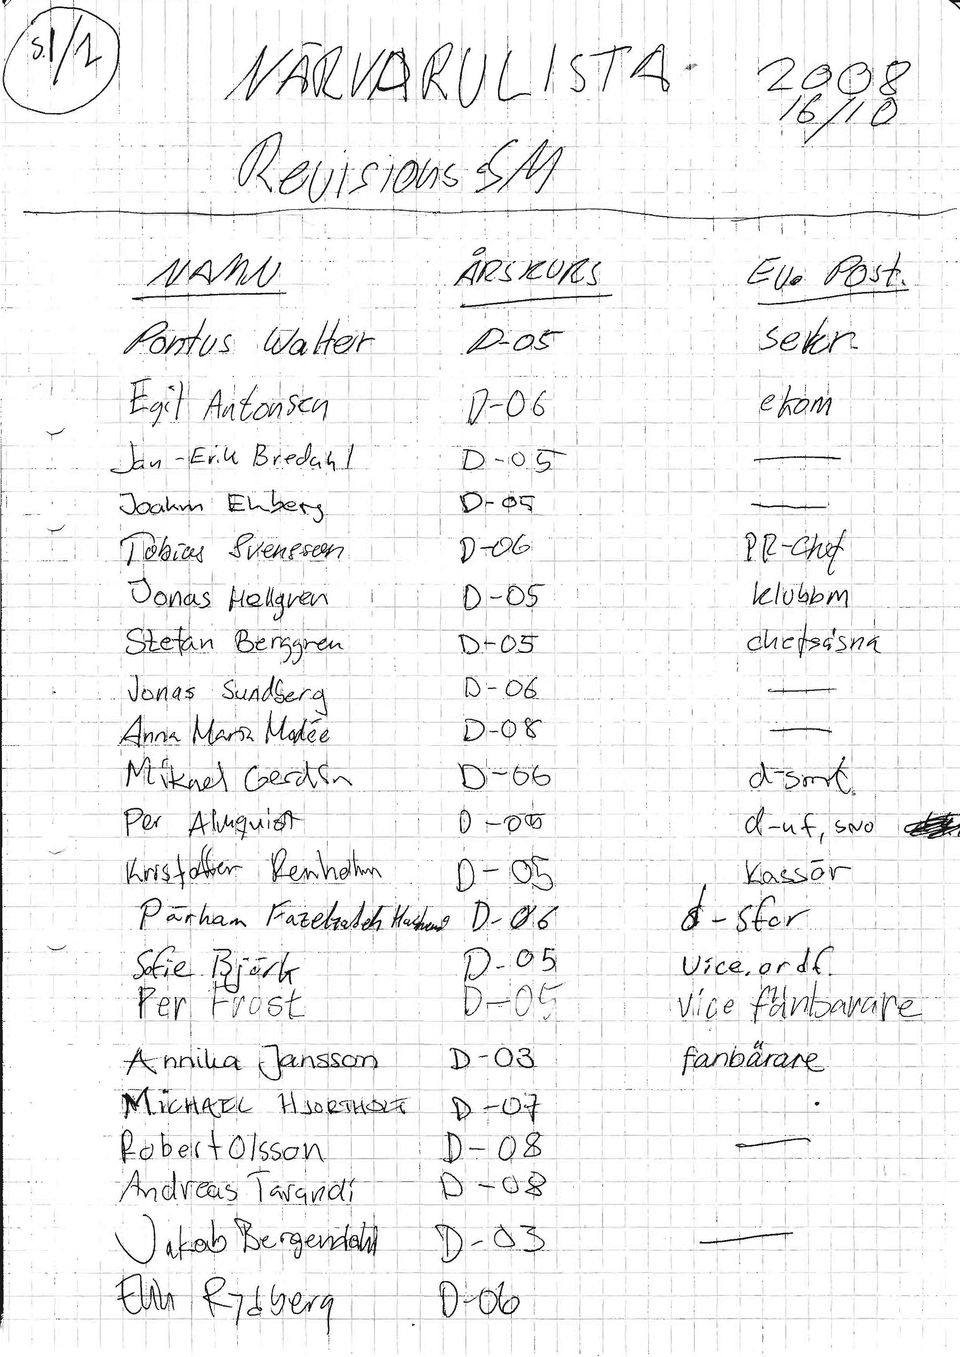 s.1/2
NÄRVARULISTA 2008
16/10
Revisions SM
NAMN ÅRSKURS Ev. Post.
Pontus Walter D-05 sekr.
Egil Antonsen D-06 ekom
Jan-Erik Bredahl D-05 —
Joakim Ekberg D-05 —
Tobias Svensson D-06 PR-Chef
Jonas Hellgren D-05 klubbm
Stefan Berggren D-05 chefsåsna
Jonas Sundberg D-06 —
Anna Maria Modée D-08 —
Mikael Gerdin D-06 d-smt
Per Almquist D-05 d-uf, SNO
Kristoffer Renholm D-05 Kassör
Parham Fazelzadeh D-06 d-sfor
Sofie Björk D-05 Vice.ordf.
Per Frost D-05 vice fanbärare
Annika Jansson D-03 fanbärare
MICHAEL HJORTHOLT D-07
Robert Olsson D-08 —
Andreas Tarandi D-08
Jakob Bergendahl D-03 —
Elin Rydberg D-06